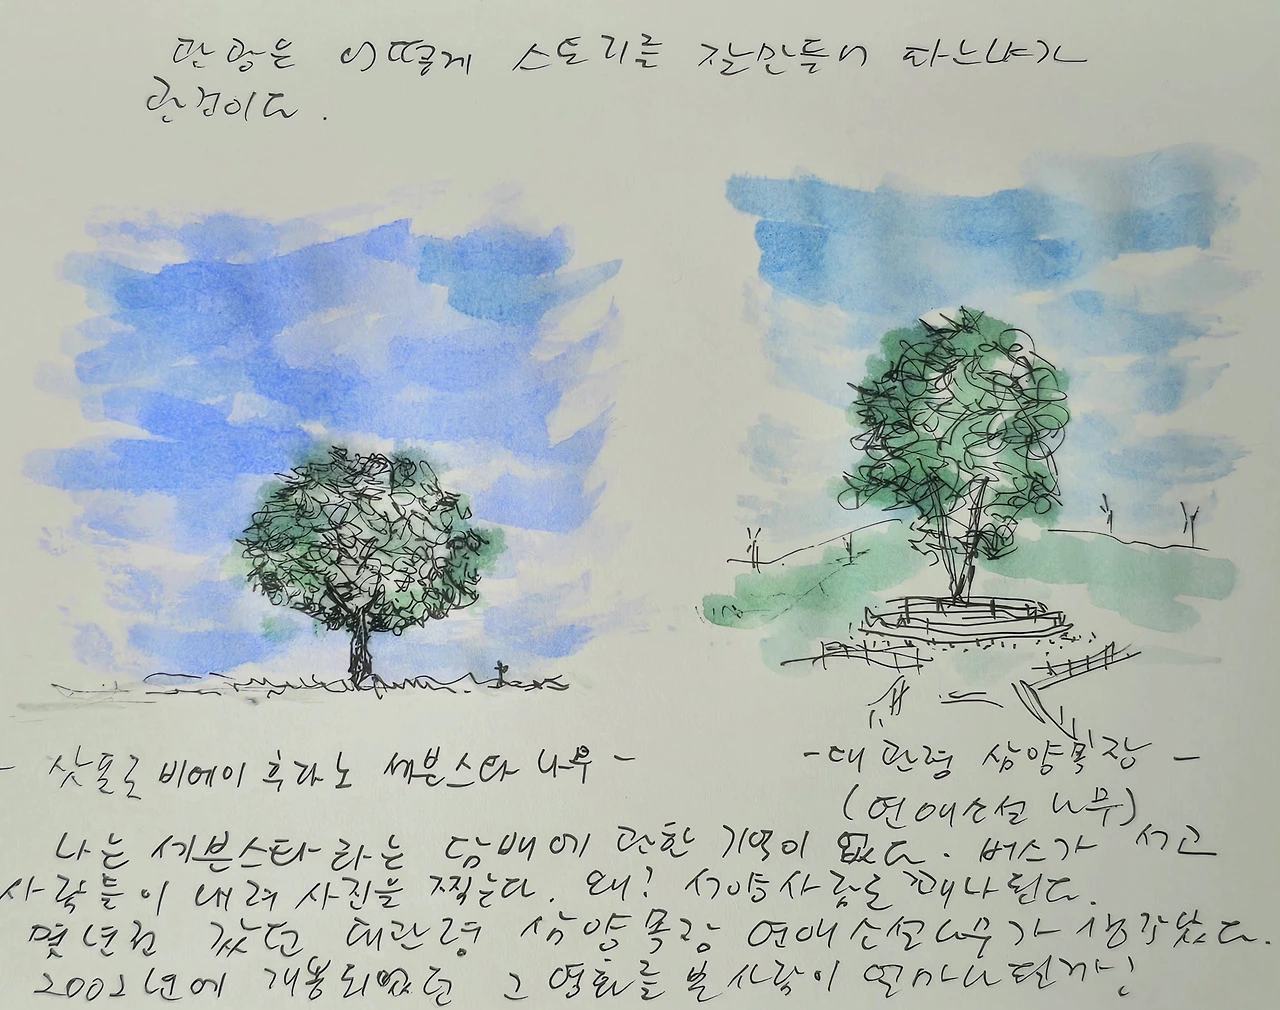 관광은 어떻게 스토리를 잘만들어 파느냐가
관건이다.
- 삿포로 비에이 후라노 세븐스타 나무 -
- 대관령 삼양목장 -
(연애소설 나무)
나는 세븐스타라는 담배에 관한 기억이 없다. 버스가 서고
사람들이 내려 사진을 찍는다. 왜? 서양사람도 꽤나 된다.
몇년전 갔던 대관령 삼양목장 연애소설나무가 생각났다.
2002년에 개봉되었던 그 영화를 본 사람이 얼마나 될까!